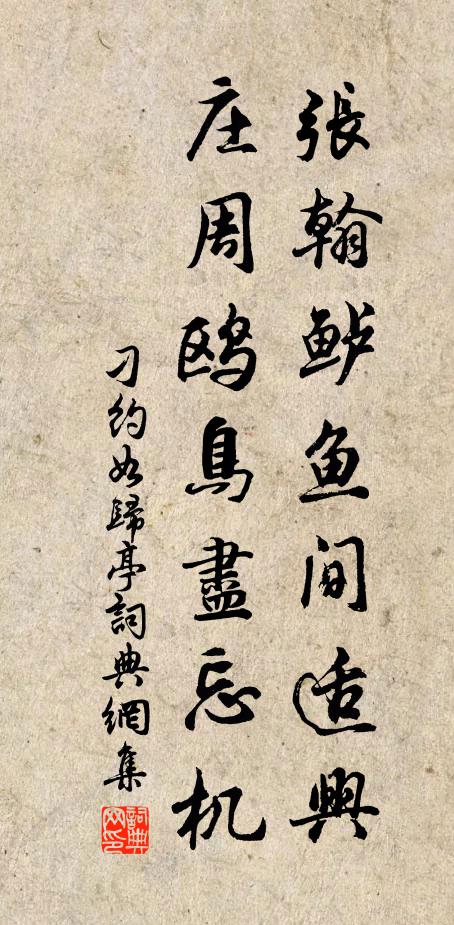 張翰鲈鱼间适興
庄周鸥鳥盡忘机
刁約如歸亭詞典網集
詞典网印